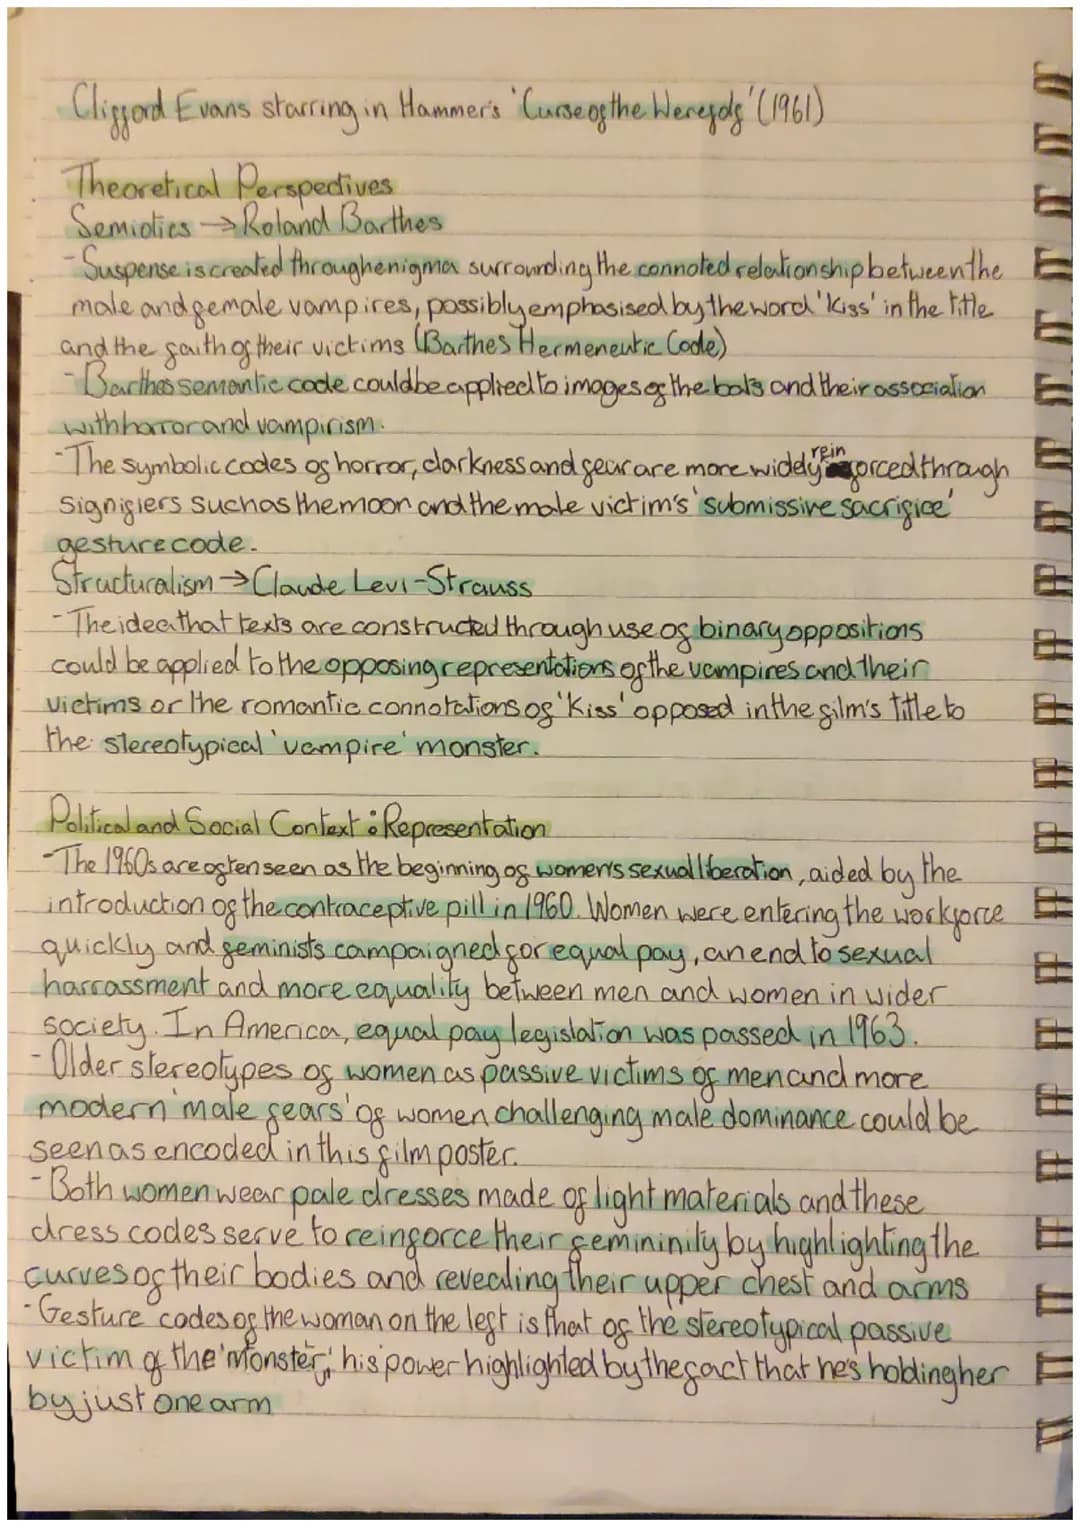 Clifford Evans starring in Hammer's 'Curse of the Werefols' (1961)
Theoretical Perspectives
Semiotics → Roland Barthes
- Suspense is created through enigma surrounding the connoted relationship between the
male and female vampires, possibly emphasised by the word 'Kiss' in the title
and the faith of their victims (Barthes Hermeneutic Code)
- Barthes semantic code could be applied to images of the bats and their association
with horror and vampirism.
- The symbolic codes of horror, darkness and fear are more widely reinforced through
signifiers such as the moon and the male victim's 'submissive sacrifice'
gesture code.
Structuralism → Claude Levi-Strauss
- The idea that texts are constructed through use of binary oppositions
could be applied to the opposing representations of the vampires and their
victims or the romantic connotations of 'Kiss' opposed in the film's title to
the stereotypical 'vampire' monster.
Political and Social Context: Representation
- The 1960s are often seen as the beginning of women's sexual liberation, aided by the
introduction of the contraceptive pill in 1960. Women were entering the workforce
quickly and feminists campaigned for equal pay, an end to sexual
harrassment and more equality between men and women in wider
society. In America, equal pay legislation was passed in 1963.
- Older stereotypes of women as passive victims of men and more
modern 'male fears' of women challenging male dominance could be
seen as encoded in this film poster.
- Both women wear pale dresses made of light materials and these
dress codes serve to reinforce their femininity by highlighting the
curves of their bodies and revealing their upper chest and arms
- Gesture codes of the woman on the left is that of the stereotypical passive
victim of the 'Monster,' his power highlighted by the fact that he's holding her
by just one arm